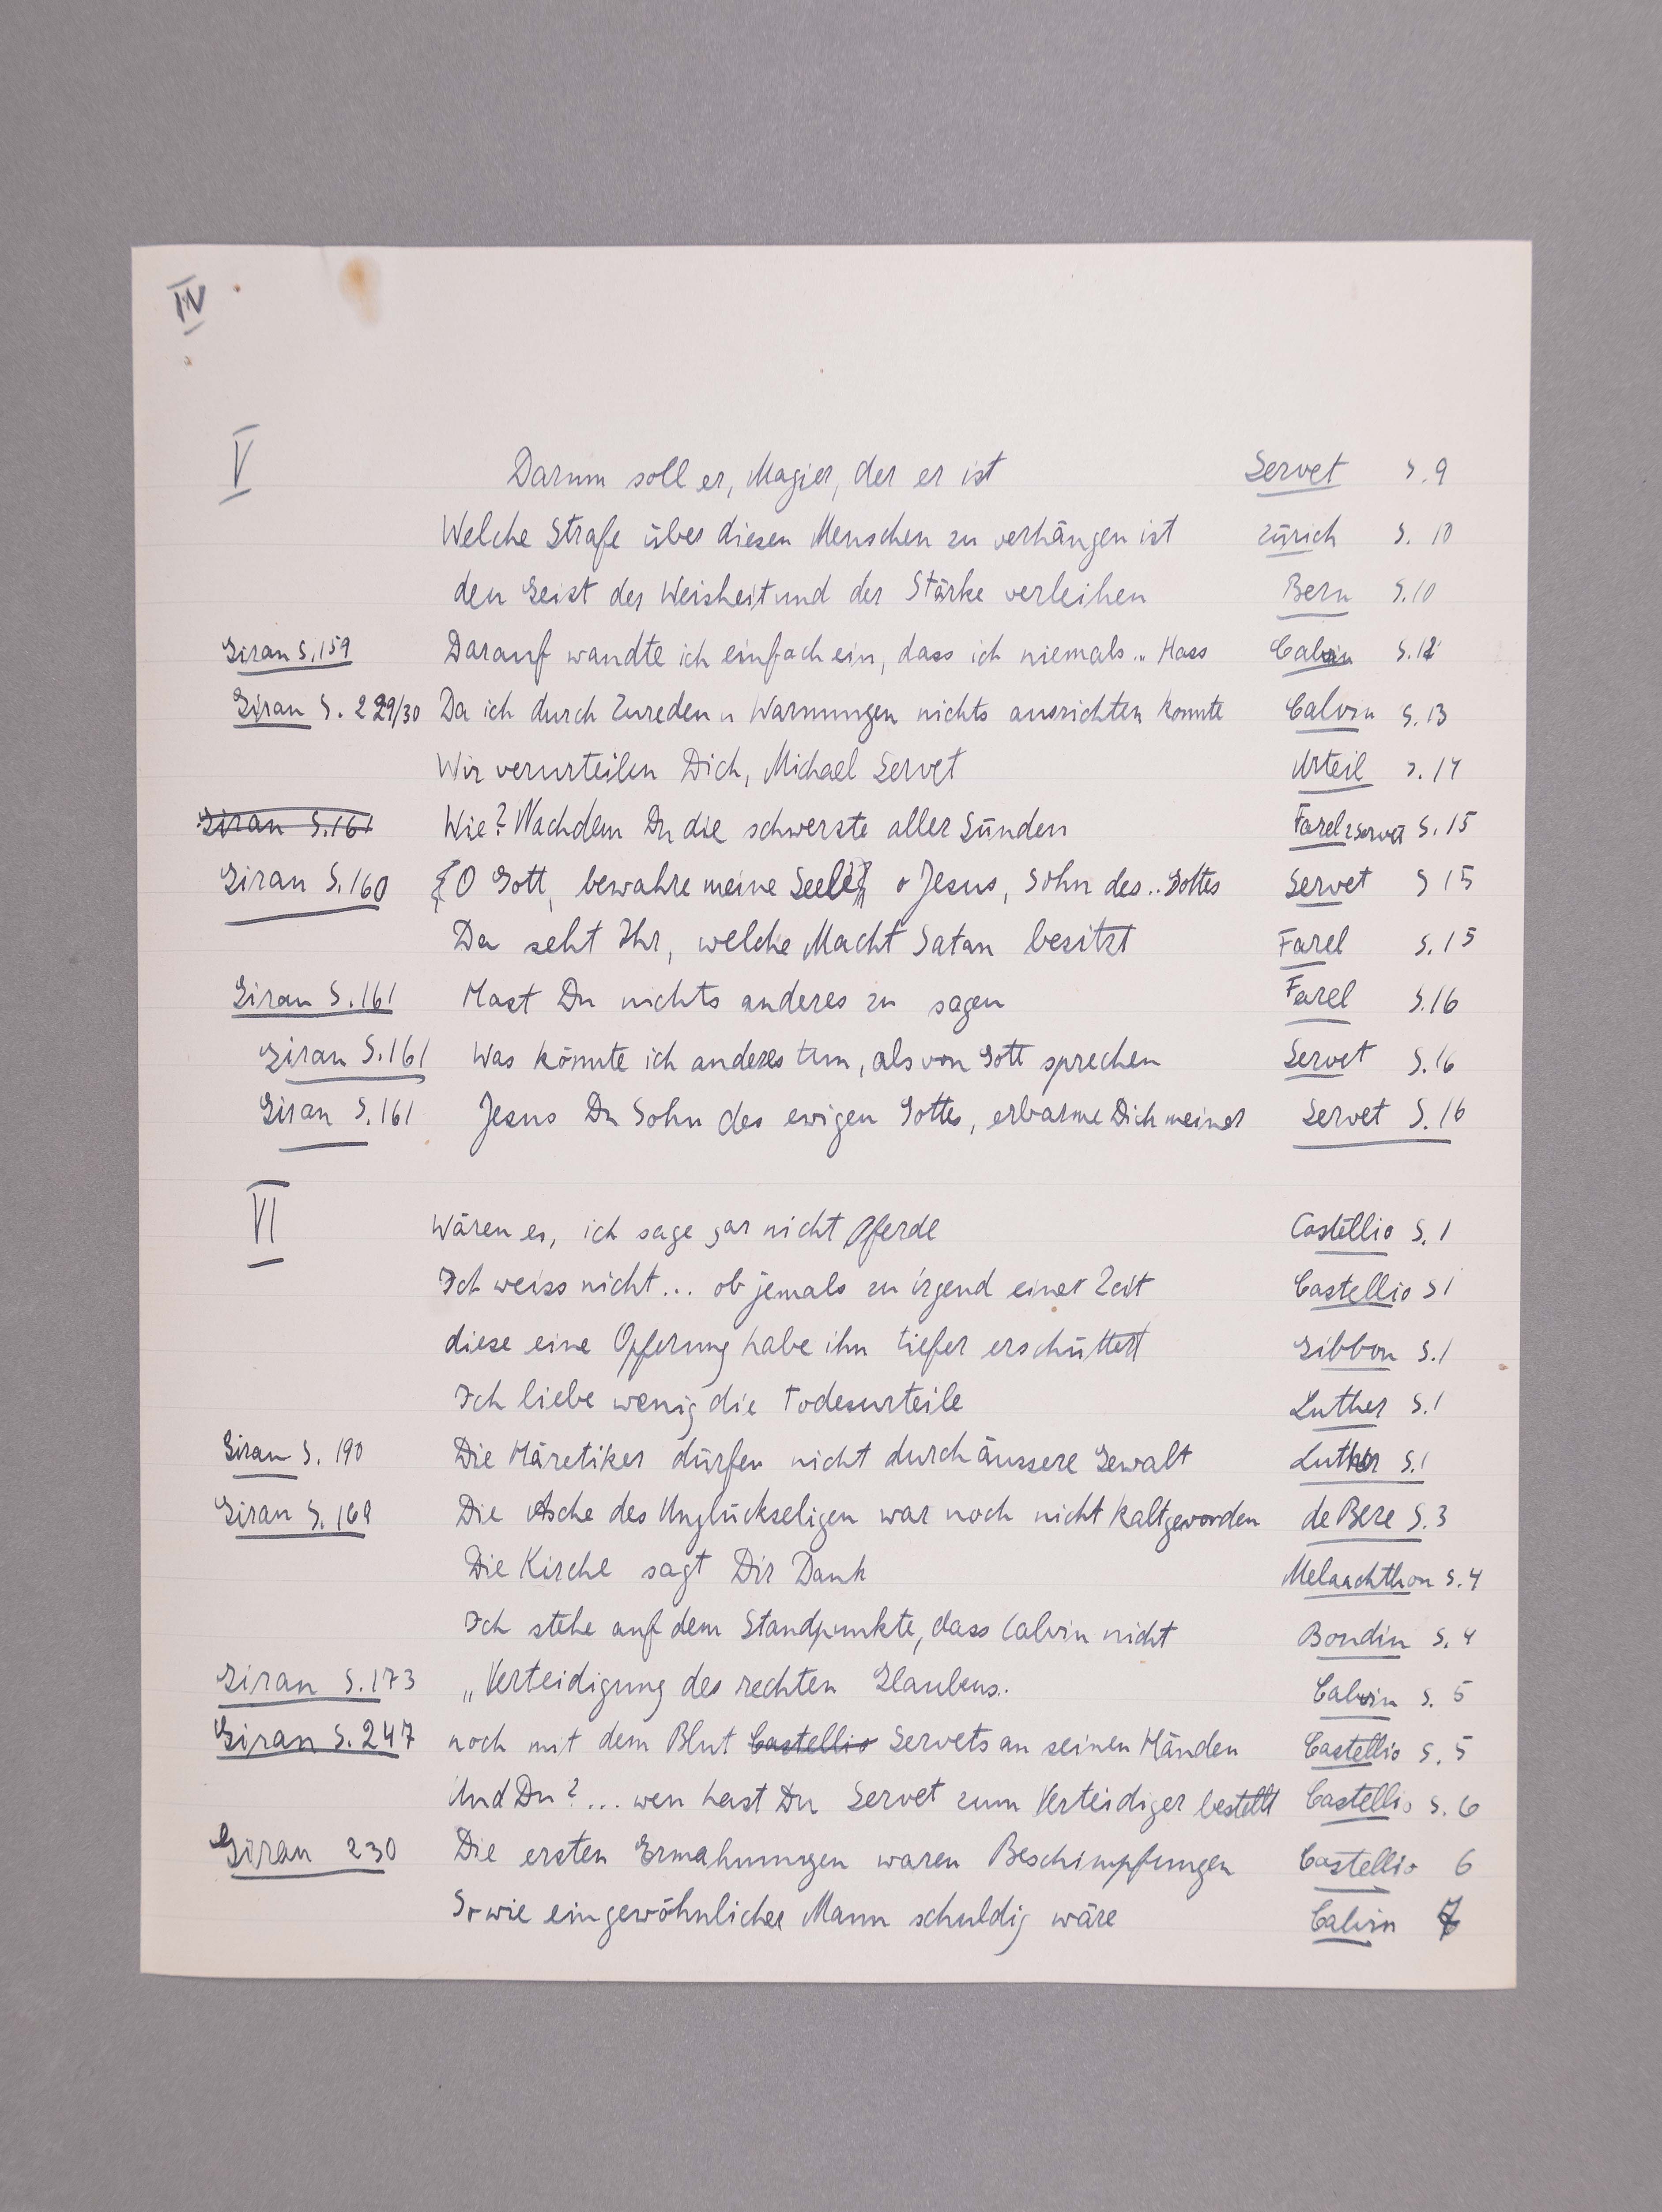 IV
V Darum soll er, Magier, der er ist Servet S. 9
Welche Strafe über diesen Menschen zu verhängen ist Zürich S. 10
den Geist der Weisheit und der Stärke verleihen Bern S. 10
Giran S. 159 Darauf wandte ich einfach ein, dass ich niemals .. Hass Calvin S. 12
Giran S. 229/30 Da ich durch Zureden u Warnungen nichts ausrichten konnte Calvin S. 13
Wir verurteilen Dich, Michael Servet Urteil S. 14
Giran S. 161 Wie? Nachdem Du die schwerste aller Sünden Farel z Servet S. 15
Giran S. 160 O Gott, bewahre meine Seele o Jesus, Sohn des .. Gottes Servet S 15
Da seht Ihr, welche Macht Satan besitzt Farel S. 15
Giran S. 161 Hast Du nichts anderes zu sagen Farel S. 16
Giran S. 161 Was könnte ich anderes tun, als von Gott sprechen Servet S. 16
Giran S. 161 Jesus Du Sohn des ewigen Gottes, erbarme Dich meiner Servet S. 16
VI Wären es, ich sage gar nicht Pferde Castellio S. 1
Ich weiss nicht... ob jemals zu irgend einer Zeit Castellio S 1
diese eine Opferung habe ihn tiefer erschüttert Gibbon S. 1
Ich liebe wenig die Todesurteile Luther S. 1
Giran S. 190 Die Häretiker dürfen nicht durch äussere Gewalt Luther S. 1
Giran S. 168 Die Asche des Unglückseligen war noch nicht kalt geworden de Beze S. 3
Die Kirche sagt Dir Dank Melanchthon S. 4
Ich stehe auf dem Standpunkte, dass Calvin nicht Boudin S. 4
Giran S. 173 „Verteidigung des rechten Glaubens.. Calvin S. 5
Giran S. 247 noch mit dem Blut Castellio Servets an seinen Händen Castellio S. 5
Und Du? ... wen hast Du Servet zum Verteidiger bestellt Castellio S. 6
Giran 230 Die ersten Ermahnungen waren Beschimpfungen Castellio 6
So wie ein gewöhnlicher Mann schuldig wäre Calvin 7